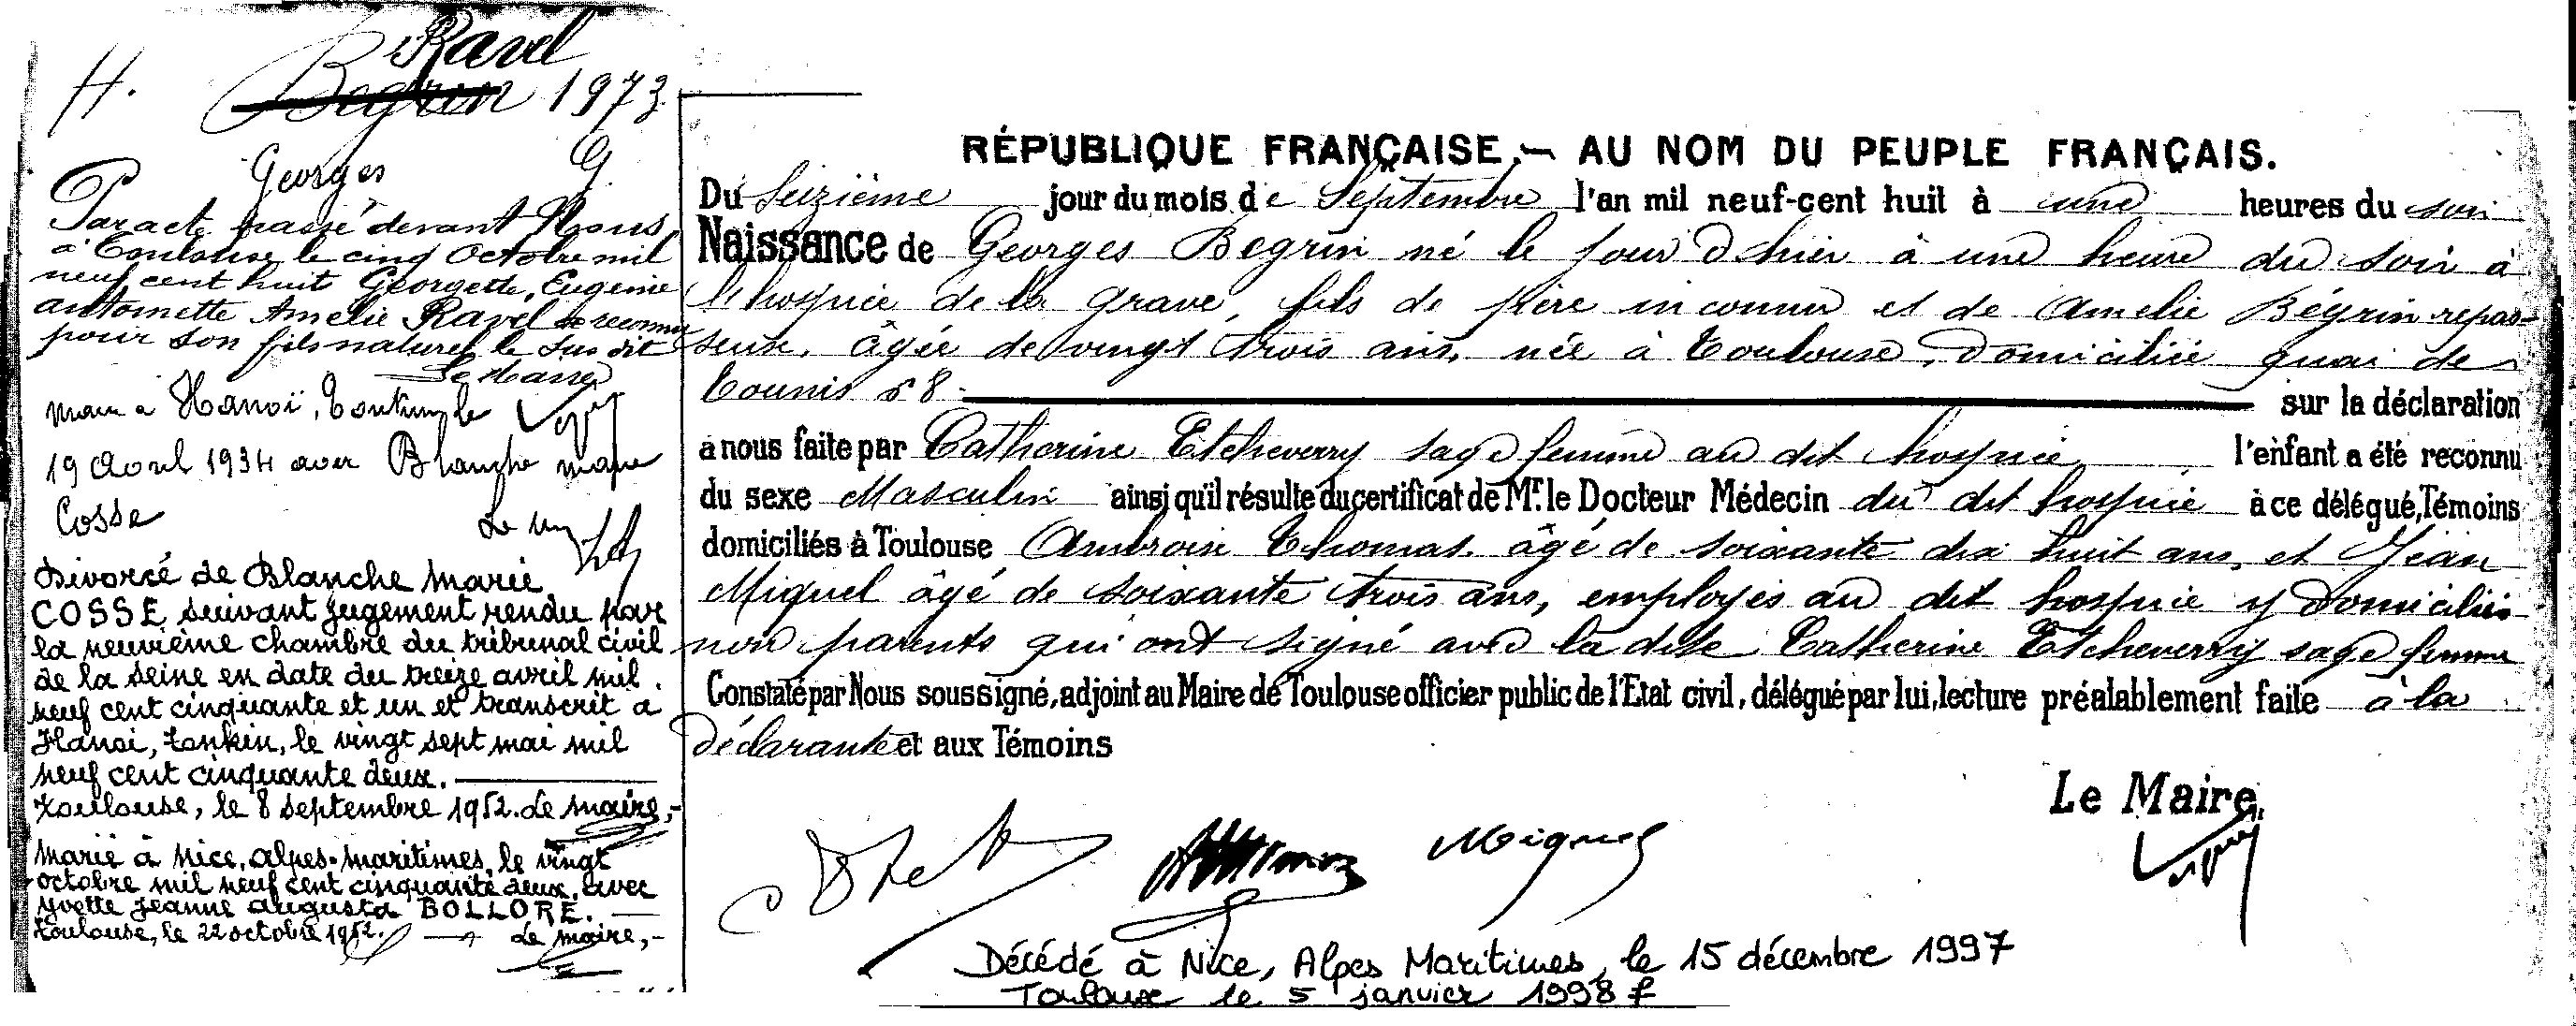 H. Ravel
Begrin 1973
Georges G
Par acte passé devant Nous
à Toulouse le cinq Octobre mil
neuf cent huit Georgette, Eugénie
antoinette Amelie Ravel a reconnu
pour son fils naturel le sus dit
Le Maire
Marié à Hanoï, Tonkin, le
19 Avril 1934 avec Blanche marie
Cosse
Le
Divorcé de Blanche Marie
COSSE suivant jugement rendu par
la neuvième chambre du tribunal civil
de la Seine en date du treize avril mil
neuf cent cinquante et un et transcrit à
Hanoi, Tonkin, le vingt sept mai mil
neuf cent cinquante deux.
Toulouse, le 8 septembre 1952. Le maire,-
Marié à Nice, Alpes-maritimes, le vingt
octobre mil neuf cent cinquante deux, avec
Yvette Jeanne Augusta BOLLORE.
Toulouse, le 22 octobre 1952. Le maire,-
RÉPUBLIQUE FRANÇAISE.— AU NOM DU PEUPLE FRANÇAIS.
Du Seizième jour du mois de Septembre l'an mil neuf-cent huit à une heures du soir
Naissance de Georges Begrin né le jour d'hier à une heure du soir à
l'hospice de la grave, fils de père inconnu et de Amelie Bégrin repas-
seuse, âgée de vingt trois ans, née à Toulouse, domiciliée quai de
Tounis 58 sur la déclaration
à nous faite par Catherine Etcheverry sage femme au dit hospice l'enfant a été reconnu
du sexe Masculin ainsi qu'il résulte du certificat de Mr. le Docteur Médecin du dit hospice à ce délégué, Témoins
domiciliés à Toulouse Ambroise Thomas âgé de soixante dix huit ans, et Jean
Miquel âgé de soixante trois ans, employés au dit hospice y domiciliés
non parents qui ont signé avec la dite Catherine Etcheverry sage femme
Constaté par Nous soussigné, adjoint au Maire de Toulouse officier public de l'Etat civil, délégué par lui, lecture préalablement faite à la
déclarante et aux Témoins
Le Maire,
Miquel
Décédé à Nice, Alpes Maritimes, le 15 décembre 1997
Toulouse le 5 janvier 1998